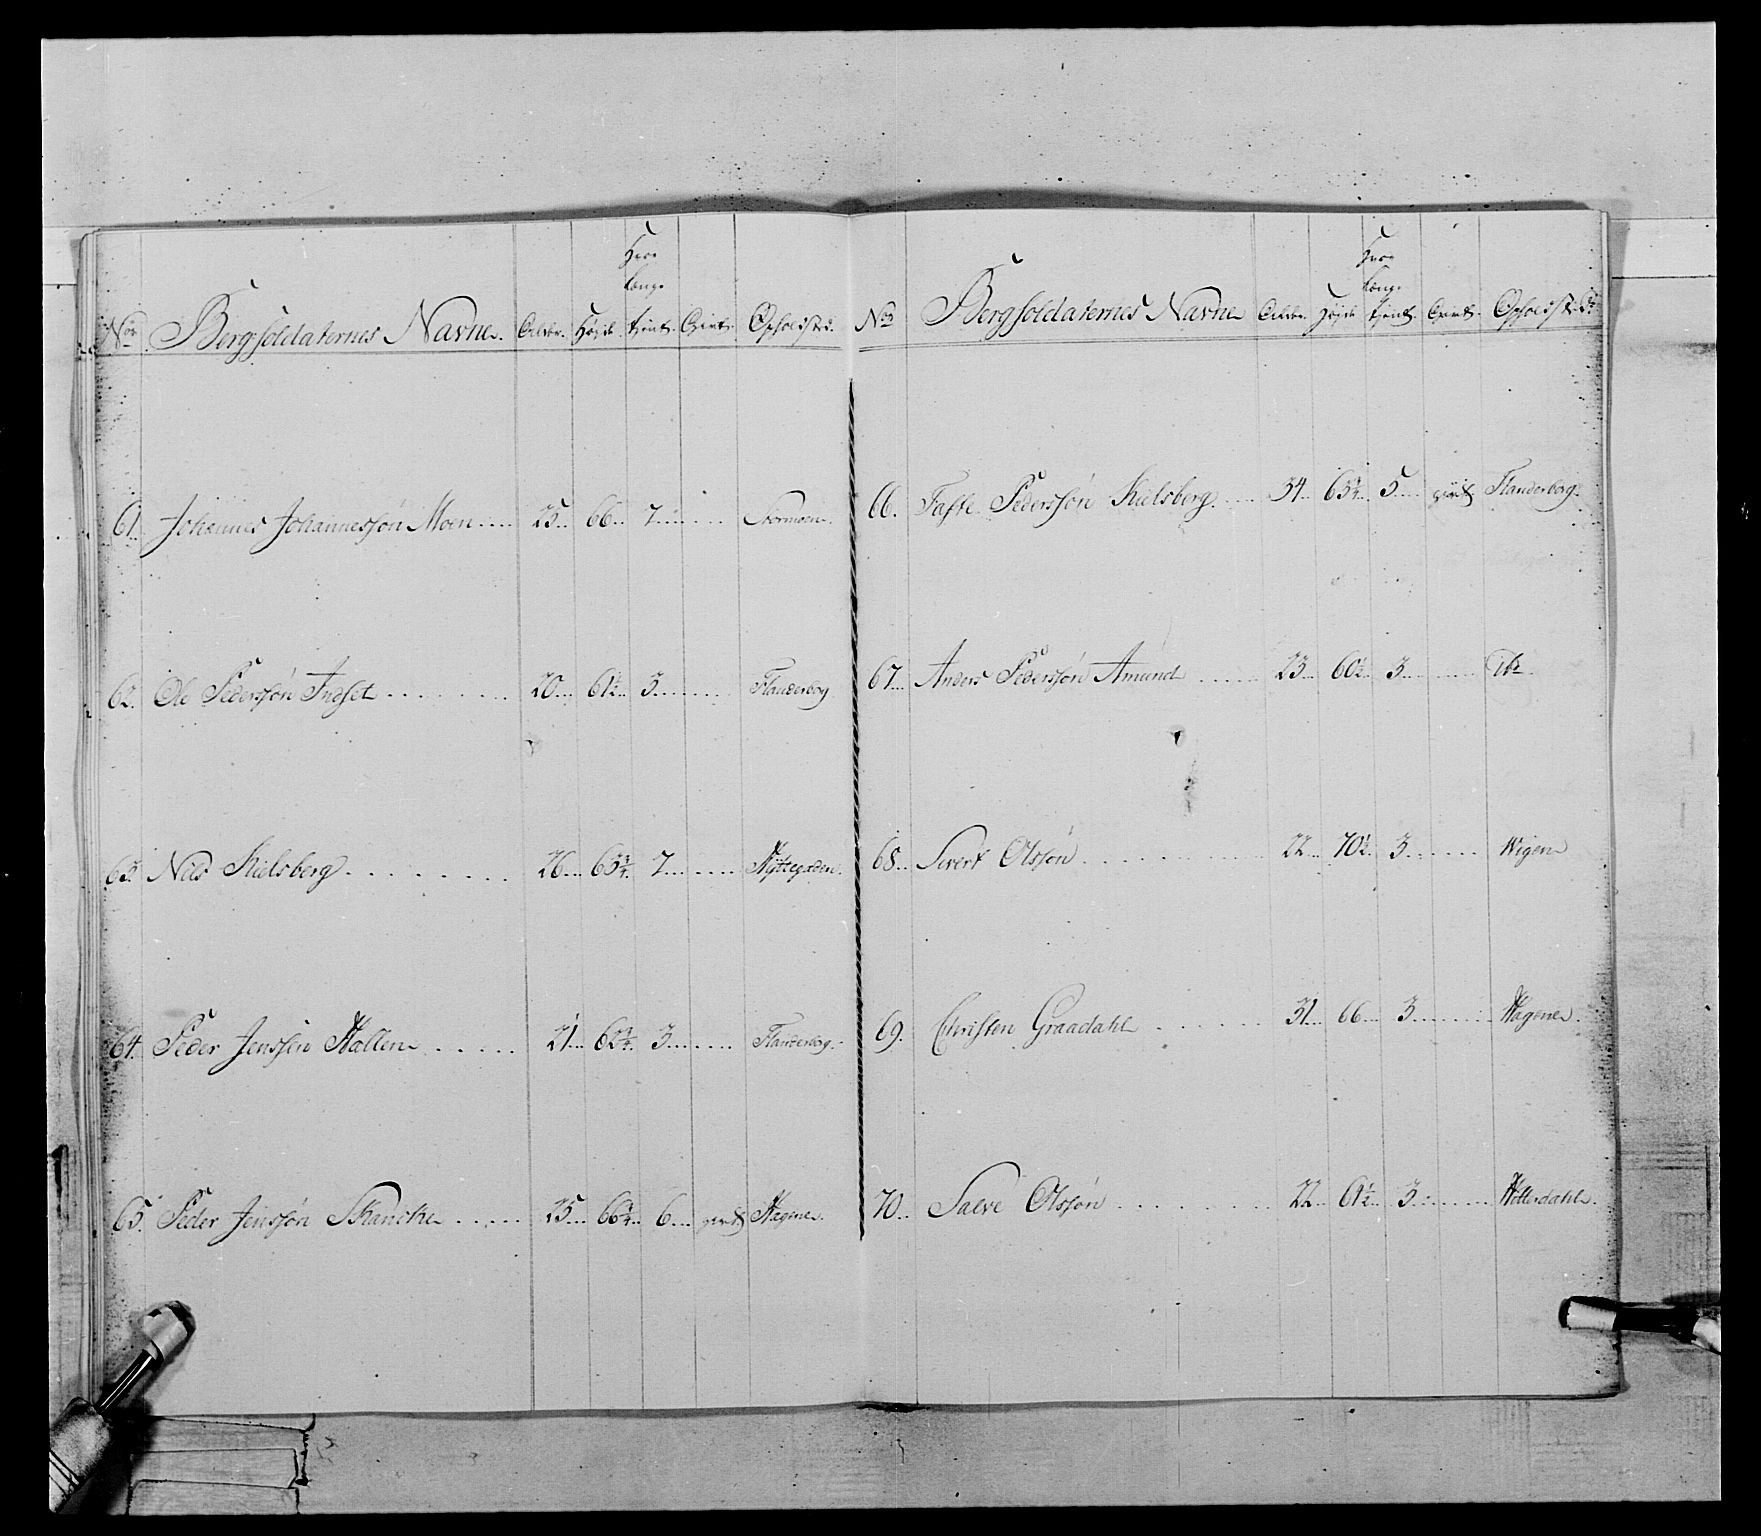 Nor Bergsoldaternes Navne. Alder. Høyde Hvor længe tient. Givt. Opholdsted.
61. Johannes Johannessøn Moen .... 25... 66... 7...... Stormoen.
62. Ole Pederssøn Indset ........ 20... 61½... 3........ Flanderborg
63. Nils Kielsberg ........ 26... 65¾. 7........ Hyttegaden.
64. Peder Jenssen Hallen ..... 21... 62¾. 3........ Flanderborg.
65. Peder Jenssøn Skancke ..... 25... 66¼. 6... givt Hagene.
Nor Bergsoldaternes Navne Alder. Høyde Hvor længe tient. Givt. Opholdsted.
66. Faste Pederssøn Kielsberg .... 34... 65¼. 5.... givt Flanderborg.
67. Anders Pederssøn Amund ...... 23... 60½. 3........ Ibd.
68... Sivert Olssøn ............ 22... 70½. 3........ Wigen
69. Christen Graadahl ....... 31... 66... 3........ Hagene.
70... Salve Olssøn .......... 22... 61½. 3........ Hitterdahl.